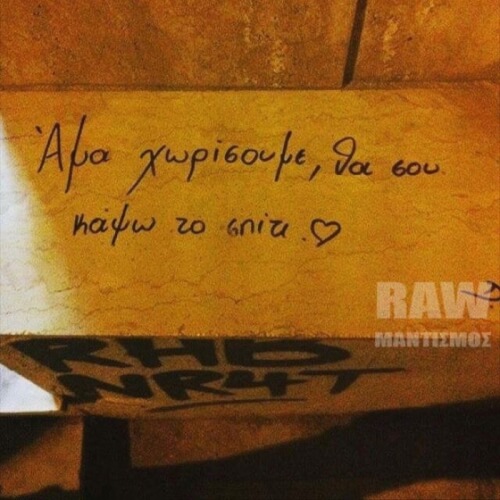 Άμα χωρίσουμε, θα σου
κάψω το σπίτι. ♡
RAW
ΜΑΝΤΙΣΜΟΣ
RHB
NR4T